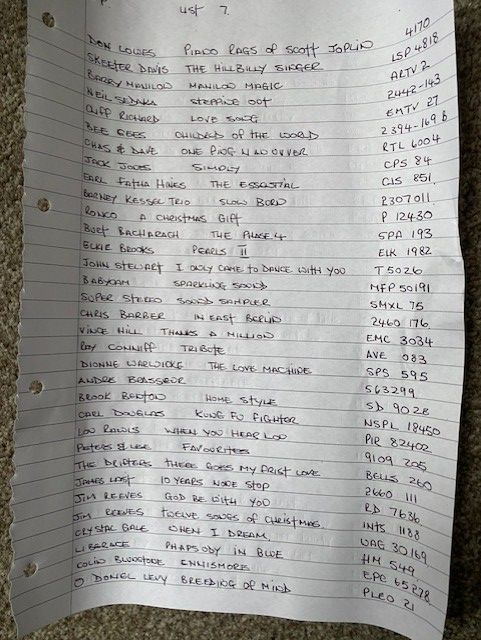 LIST 7.
DON LOWES PIANO RAGS OF SCOTT JOPLIN 4170
SKEETER DAVIS THE HILLBILLY SINGER LSP 4818
BARRY MANILOW MANILOW MAGIC ARTV 2
NEIL SEDAKA STEPPING OUT 2442-143
CLIFF RICHARD LOVE SONG EMTV 27
BEE GEES CHILDREN OF THE WORLD 2394-169 B
CHAS & DAVE ONE FING N ANOVVER RTL 6004
JACK JONES SIMPLY CPS 84
EARL FATHA HINES THE ESSENTIAL CJS 851
BARNEY KESSEL TRIO SLOW BURN 2307011
RONCO A CHRISTMAS GIFT P 12430
BURT BACHARACH THE PHASE 4 SPA 193
ELKIE BROOKS PEARLS II ELK 1982
JOHN STEWART I ONLY CAME TO DANCE WITH YOU T 5026
BABYCHAM SPARKLING SOUND MFP 50191
SUPER STEREO SOUND SAMPLER SMXL 75
CHRIS BARBER IN EAST BERLIN 2460 176
VINCE HILL THANKS A MILLION EMC 3034
RAY CONNIFF TRIBUTE AVE 083
DIONNE WARWICKE THE LOVE MACHINE SPS 595
ANDRE BRASSEUR 563299
BROOK BENTON HOME STYLE SD 9028
CARL DOUGLAS KUNG FU FIGHTER NSPL 18450
LOU RAWLS WHEN YOU HEAR LOU PIR 82402
PETERS & LEE FAVOURITES 9109 205
THE DRIFTERS THERE GOES MY FRIST LOVE BELLS 260
JAMES LAST 10 YEARS NONE STOP 2660 111
JIM REEVES GOD BE WITH YOU RD 7636
JIM REEVES TWELVE SONGS OF CHRISTMAS INTS 1188
CRYSTAL GALE WHEN I DREAM UAG 30169
LIBERACE RHAPSODY IN BLUE HM 549
COLIN BLUNSTONE ENNISMORE EPC 65278
O DONEL LEVY BREEDING OF MIND PLEO 21